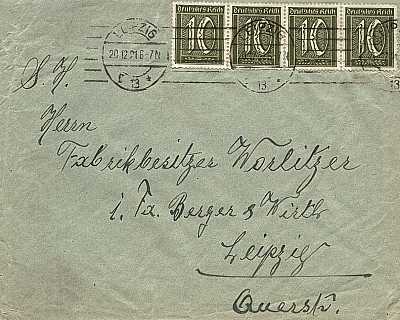 Deutsches Reich Deutsches Reich Deutsches Reich Deutsches Reich
10 10 10 10
LEIPZIG LEIPZIG
20.12.21.6-7N
13 13 13
S. H.
Herrn
Fabrikbesitzer Worlitzer
i. Fa. Berger & Wirth
Leipzig
Querstr.